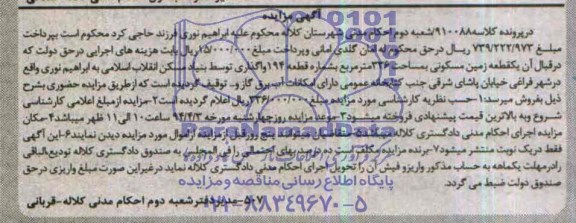 آگهی مزایده
درپرونده کلاسه ۹۱۰۰۸۸/شعبه دوم احکام مدنی شهرستان کلاله محکوم علیه ابراهیم نوری فرزند حاجی کرد محکوم است بپرداخت
مبلغ ۷۳۹/۲۲۲/۹۷۳ ریال درحق محکوم له امان گلدی امانی وپرداخت مبلغ ۲۵/۰۰۰/۰۰۰ریال بابت هزینه های اجرایی درحق دولت که
درقبال آن یکقطعه زمین مسکونی بمساحت ۳۳۶مترمربع بشماره قطعه ۱۹۴واگذاری توسط بنیاد مسکن انقلاب اسلامی به ابراهیم نوری واقع
درشهر فراغی خیابان پاشای شرقی جنب کتابخانه عمومی دارای امکانات آب برق گاز و.. توقیف گردیده است که ازطریق مزایده حضوری بشرح
ذیل بفروش میرسد:۱-حسب نظریه کارشناسی مورد مزایده مبلغ ۳۳۶/۰۰۰/۰۰۰ریال اعلام گردیده است۲-مزایده ازمبلغ اعلامی کارشناسی
شروع وبه بالاترین قیمت پیشنهادی فروخته میشود۳-موعد مزایده روزچهارشنبه مورخه ۹۴/۴/۳ ساعت ۱۰الی ۱۱ ظهر میباشد۴-مکان
مزایده اجرای احکام مدنی دادگستری کلاله پنج روز قبل از مزایده از اموال مورد مزایده دیدن نمایند۶-این آگهی
فقط دریک نوبت منتشر میشود۷-برنده مزایده مکلف است ده درصد بهای احتمالی را فی المجلس به صندوق دادگستری کلاله تودیع،الباقی
رادرمهلت یکماهه به حساب مذکور واریزو فیش آن را تحویل اجرای احکام مدنی دادگستری کلاله نماید درغیراین صورت مبلغ واریزی درحق
صندوق دولت ضبط می گردد.
پایگاه اطلاع رسانی مناقصه و مزایده
۵-۷ مدیردفترشعبه دوم احکام مدنی کلاله-قربانی
۰۲۱-۸۸۳۴۹۶۷۰-۵